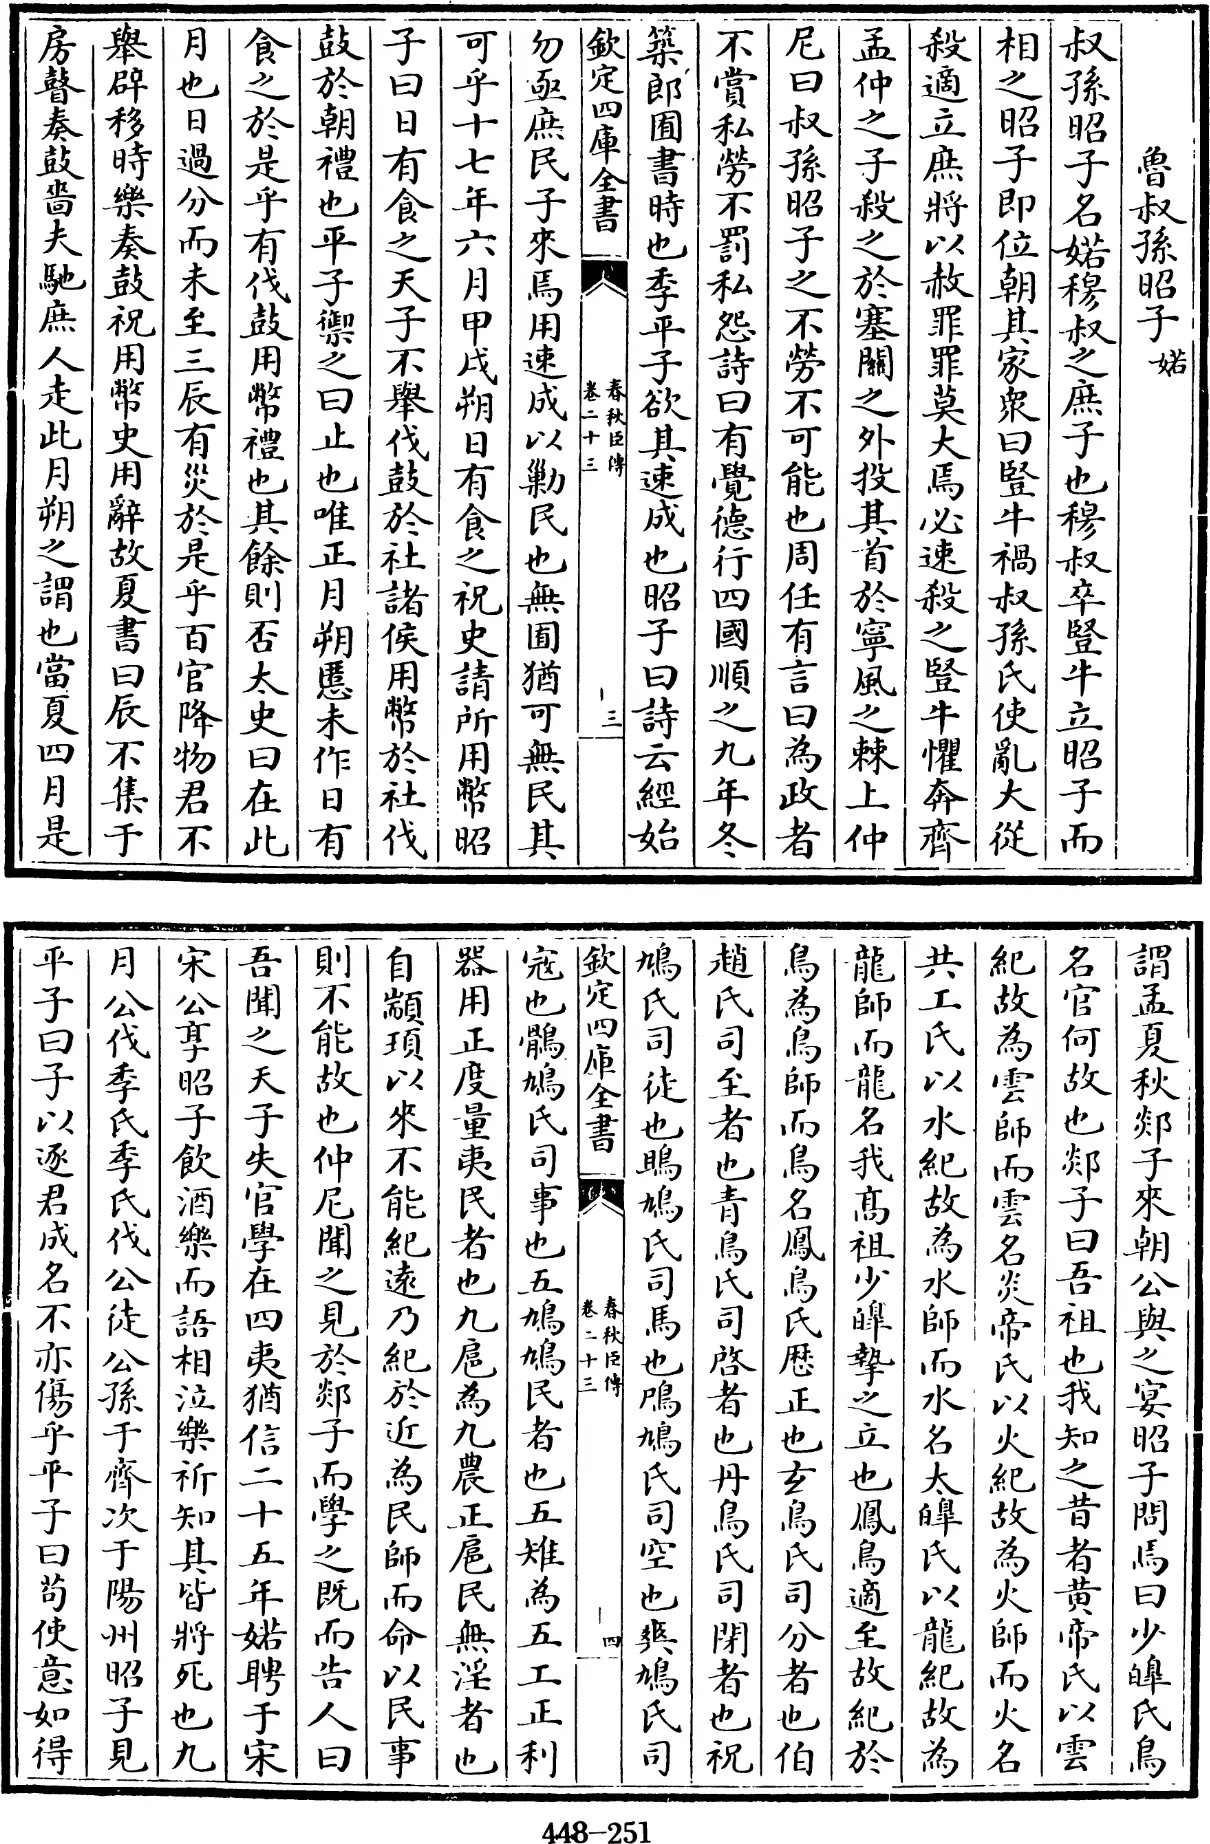 魯叔孫昭子婼
叔孫昭子名婼穆叔之庶子也穆叔卒豎牛立昭子而
相之昭子即位朝其家衆曰豎牛禍叔孫氏使亂大從
殺適立庶將以赦罪罪莫大焉必速殺之豎牛懼奔齊
孟仲之子殺之於塞關之外投其首於寧風之棘上仲
尼曰叔孫昭子之不勞不可能也周任有言曰為政者
不賞私勞不罰私怨詩曰有覺德行四國順之九年冬
築郎囿書時也季平子欲其速成也昭子曰詩云經始
欽定四庫全書
春秋臣傳
卷二十三
三
勿亟庶民子來焉用速成以勦民也無囿猶可無民其
可乎十七年六月甲戌朔日有食之祝史請所用幣昭
子曰日有食之天子不舉伐鼓於社諸侯用幣於社伐
鼓於朝禮也平子禦之曰止也唯正月朔慝未作日有
食之於是乎有伐鼓用幣禮也其餘則否太史曰在此
月也日過分而未至三辰有災於是乎百官降物君不
舉辟移時樂奏鼓祝用幣史用辭故夏書曰辰不集于
房瞽奏鼓嗇夫馳庶人走此月朔之謂也當夏四月是
謂孟夏秋郯子來朝公與之宴昭子問焉曰少皥氏鳥
名官何故也郯子曰吾祖也我知之昔者黃帝氏以雲
紀故為雲師而雲名炎帝氏以火紀故為火師而火名
共工氏以水紀故為水師而水名太皥氏以龍紀故為
龍師而龍名我髙祖少皥摯之立也鳳鳥適至故紀於
鳥為鳥師而鳥名鳳鳥氏厯正也玄鳥氏司分者也伯
趙氏司至者也青鳥氏司啓者也丹鳥氏司閉者也祝
鳩氏司徒也鴡鳩氏司馬也鳲鳩氏司空也爽鳩氏司
欽定四庫全書
春秋臣傳
卷二十三
四
寇也鶻鳩氏司事也五鳩鳩民者也五雉為五工正利
器用正度量夷民者也九扈為九農正扈民無淫者也
自顓頊以來不能紀遠乃紀於近為民師而命以民事
則不能故也仲尼聞之見於郯子而學之既而告人曰
吾聞之天子失官學在四夷猶信二十五年婼聘于宋
宋公享昭子飲酒樂而語相泣樂祈知其皆將死也九
月公伐季氏季氏伐公徒公孫于齊次于陽州昭子見
平子曰子以逐君成名不亦傷乎平子曰茍使意如得
448-251